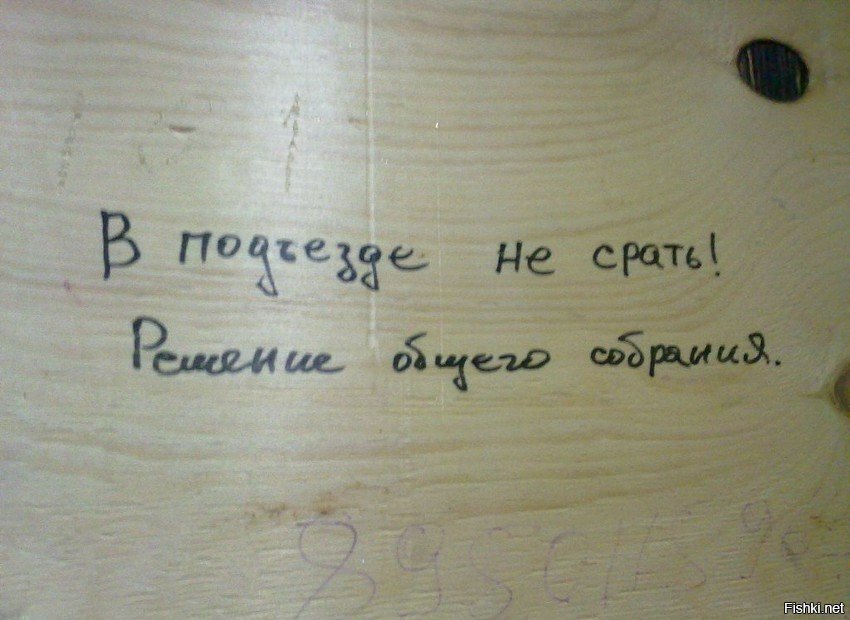 В подъезде не срать!
Решение общего собрания.
Fishki.net